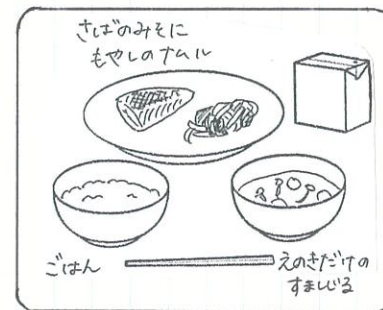 さばのみそに
もやしのナムル
ごはん
えのきだけの
すましじる